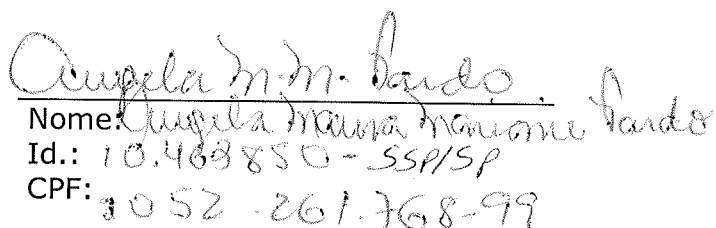 Angela M.M. Pardo
Nome: Angela Pardo
Id.: 10.463850 - SSP/SP
CPF: 052.261.768-99